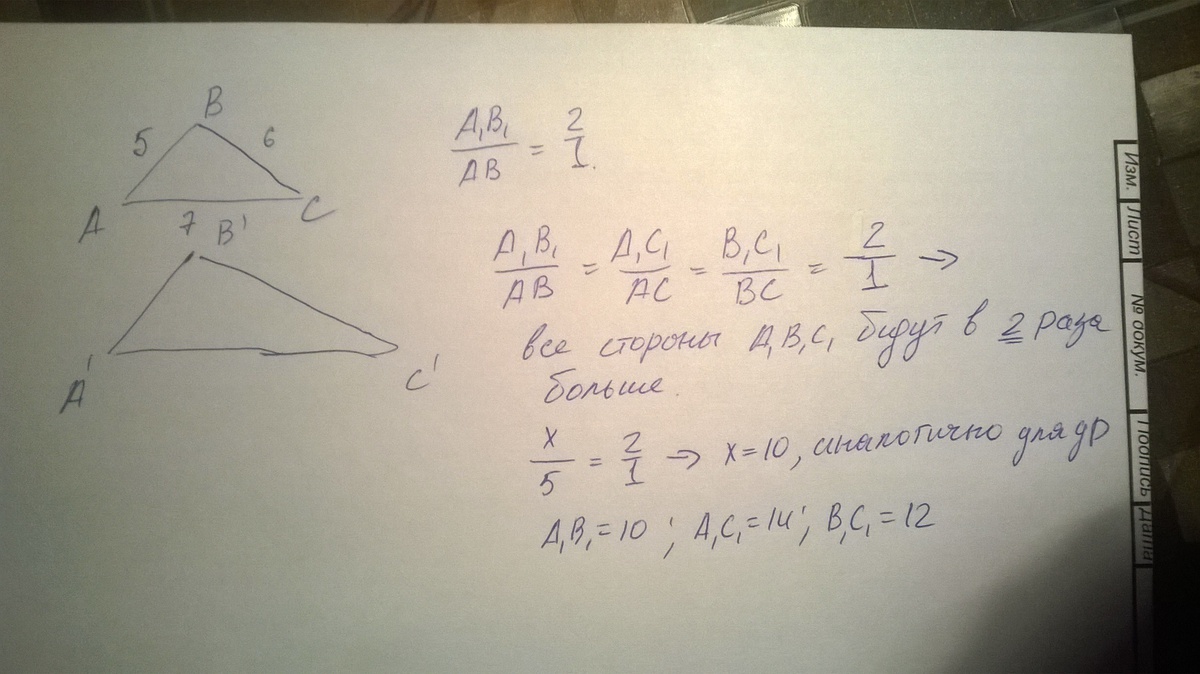 B
5 6
A 7 C
B'
A' C'
A₁B₁/AB = 2/1.
A₁B₁/AB = A₁C₁/AC = B₁C₁/BC = 2/1 →
все стороны A₁B₁C₁ будут в 2 раза
больше.
x/5 = 2/1 → x=10, аналогично для др
A₁B₁=10; A₁C₁=14; B₁C₁=12
Изм.
Лист
№ докум.
Подпись
Дата